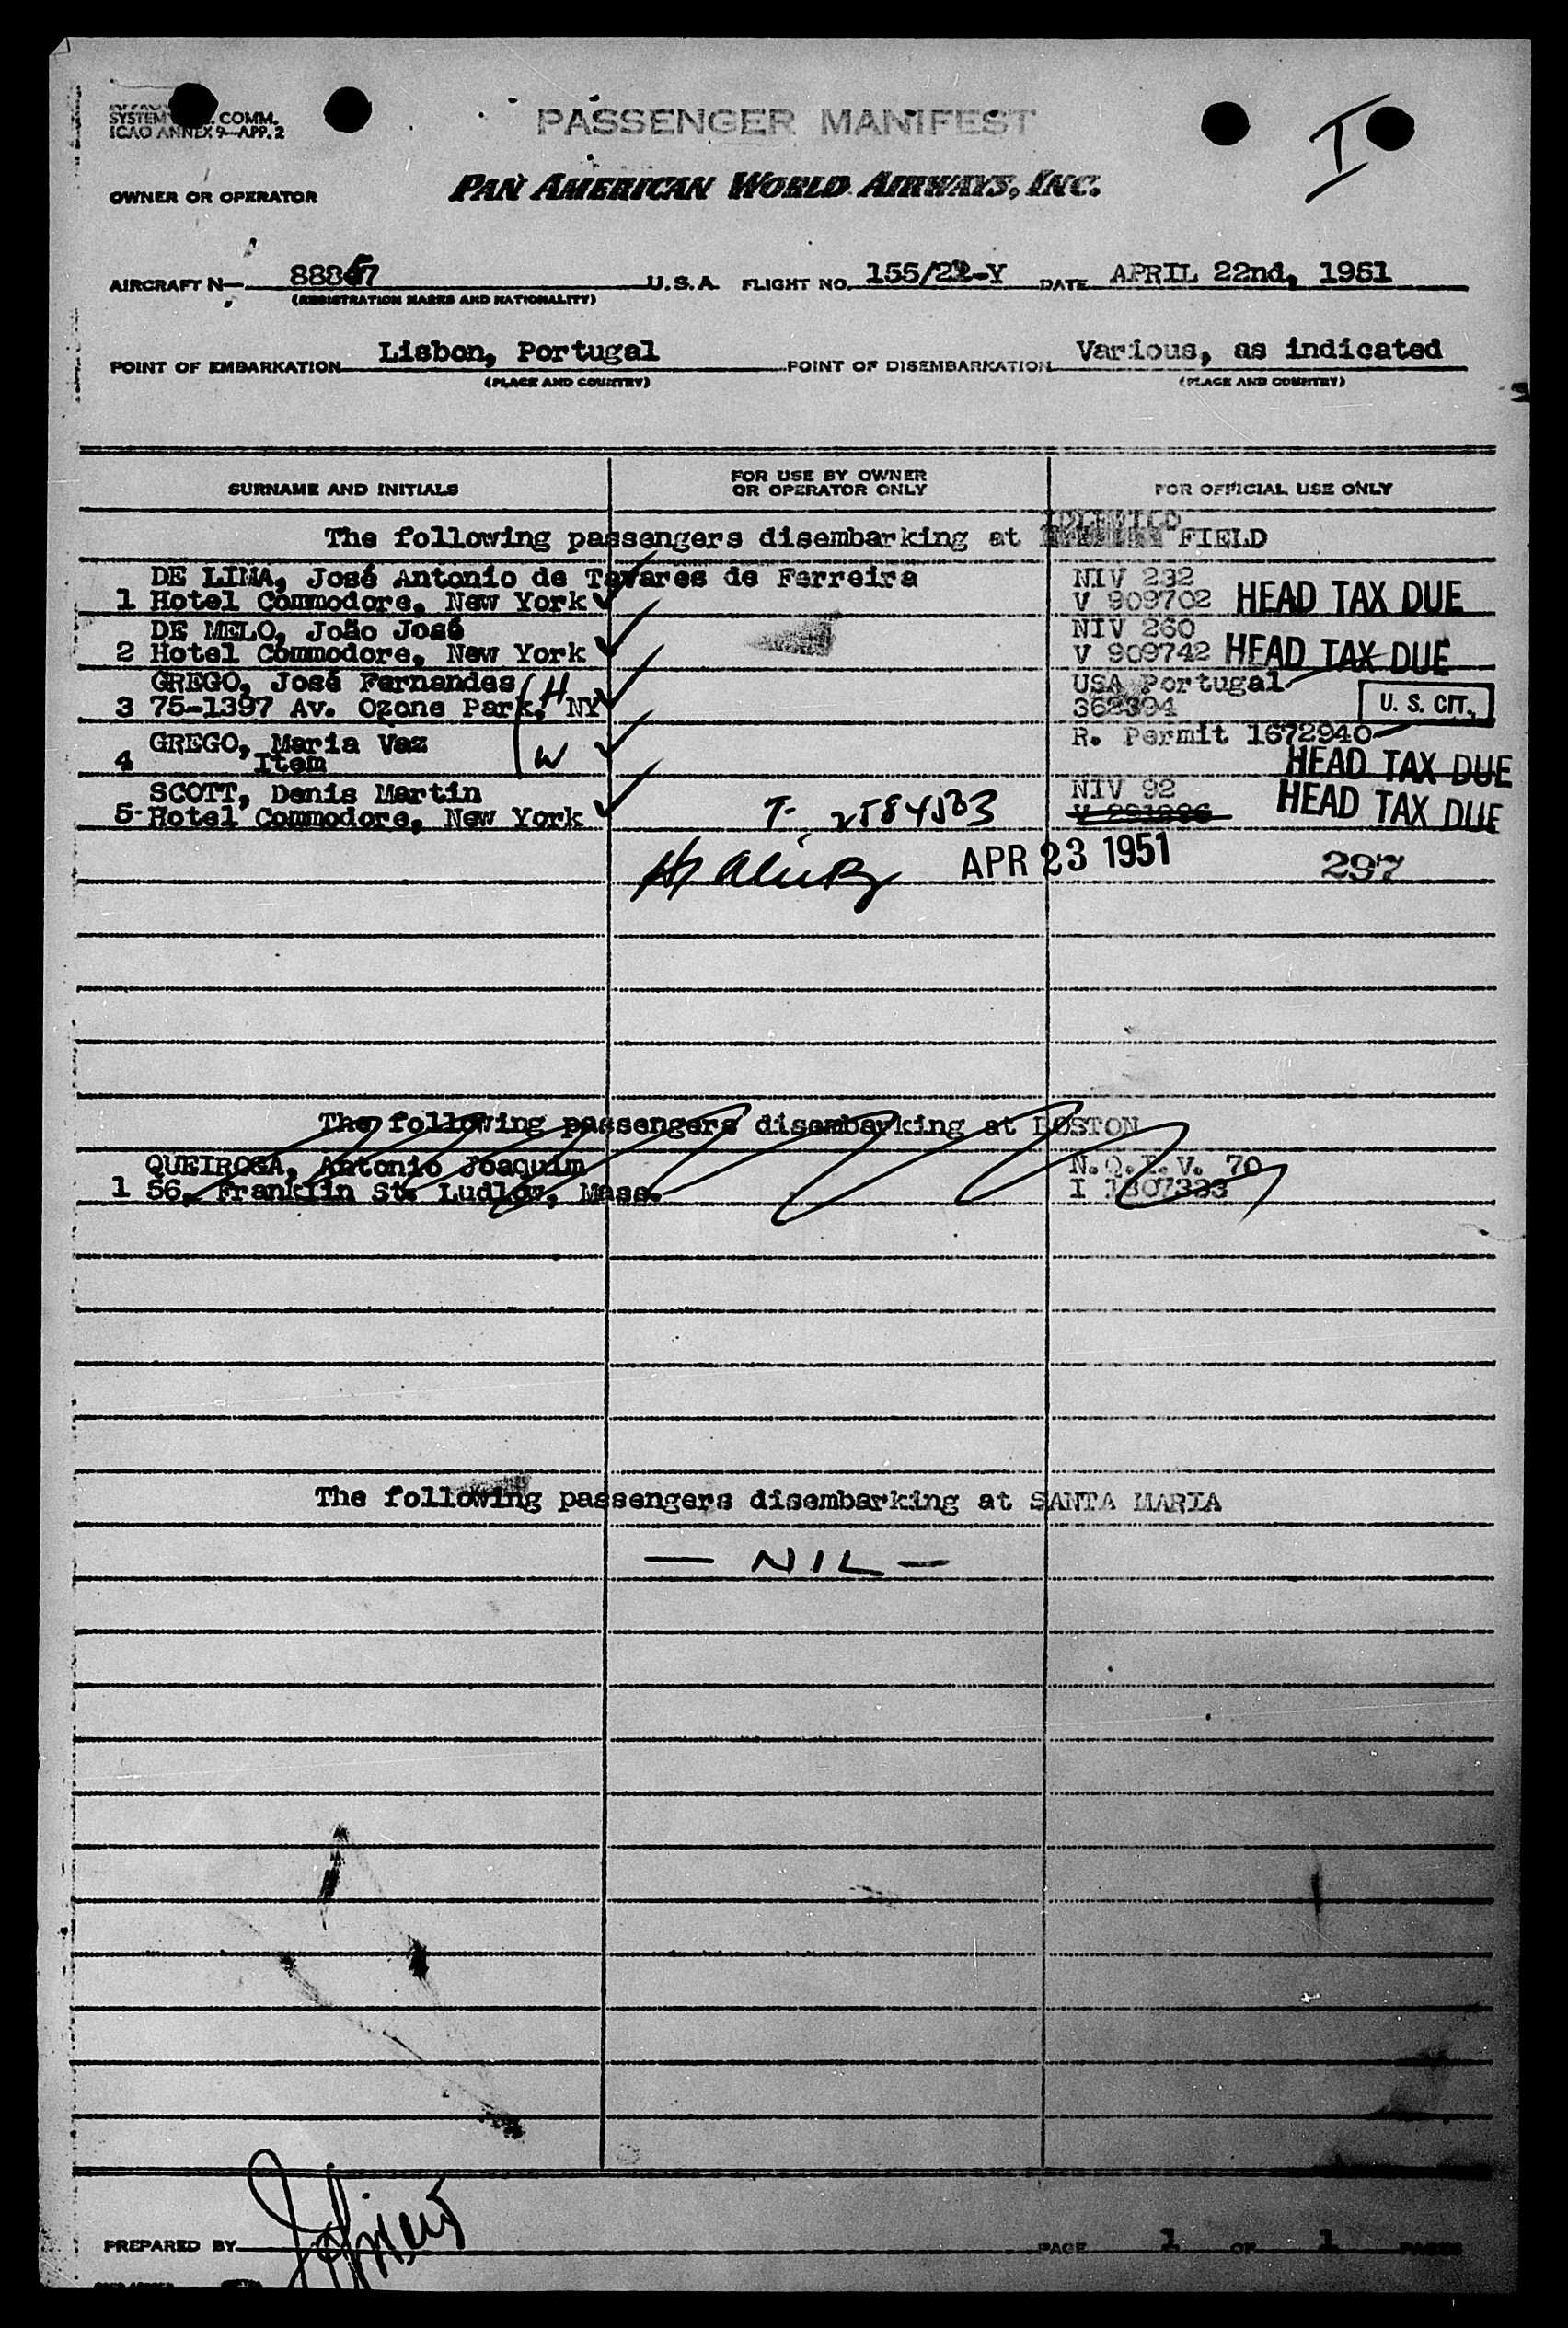 SYSTEM COMM.
ICAO ANNEX 9—APP. 2
PASSENGER MANIFEST
I
OWNER OR OPERATOR
PAN AMERICAN WORLD AIRWAYS, INC.
AIRCRAFT N— 88857 U.S.A. FLIGHT NO. 155/22-Y DATE APRIL 22nd, 1951
(REGISTRATION MARKS AND NATIONALITY)
POINT OF EMBARKATION Lisbon, Portugal POINT OF DISEMBARKATION Various, as indicated
(PLACE AND COUNTRY) (PLACE AND COUNTRY)
SURNAME AND INITIALS FOR USE BY OWNER OR OPERATOR ONLY FOR OFFICIAL USE ONLY
The following passengers disembarking at IDLEWILD FIELD
DE LIMA, José Antonio de Tavares de Ferreira NIV 232
1 Hotel Commodore, New York V 909702 HEAD TAX DUE
DE MELO, João José NIV 260
2 Hotel Commodore, New York V 909742 HEAD TAX DUE
GREGO, José Fernandes H USA Portugal
3 75-1397 Av. Ozone Park, NY 362394 U. S. CIT.
GREGO, Maria Vaz W R. Permit 1672940
4 Item HEAD TAX DUE
SCOTT, Denis Martin NIV 92
5- Hotel Commodore, New York T- 2584503 HEAD TAX DUE
APR 23 1951 297
The following passengers disembarking at BOSTON
QUEIROGA, Antonio Joaquim N.Q.I.V. 70
1 56, Franklin St. Ludlow, Mass. I 1307333
The following passengers disembarking at SANTA MARIA
— NIL —
PREPARED BY PAGE 1 OF 1 PAGES